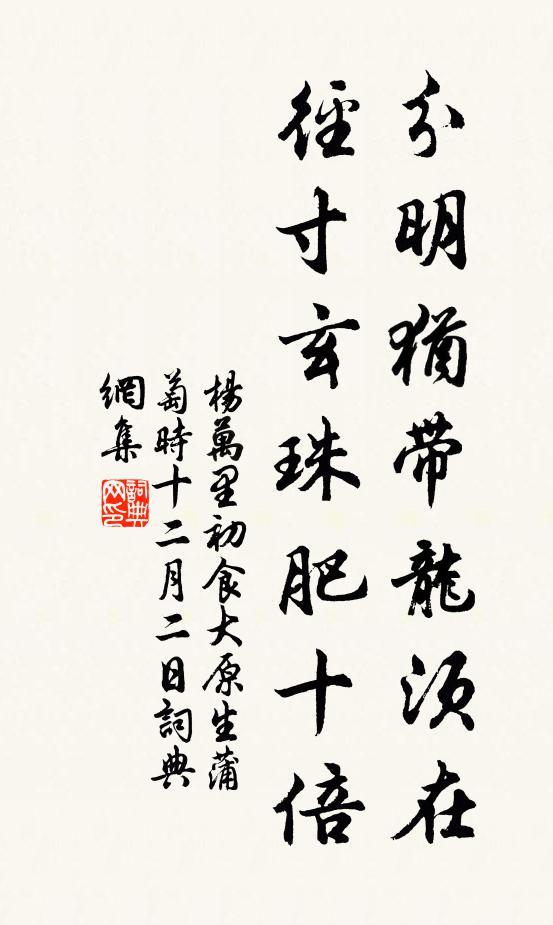 分明猶帶龍須在
徑寸玄珠肥十倍
楊萬里初食大原生蒲
萄時十二月二日詞典
網集
詞典
网印